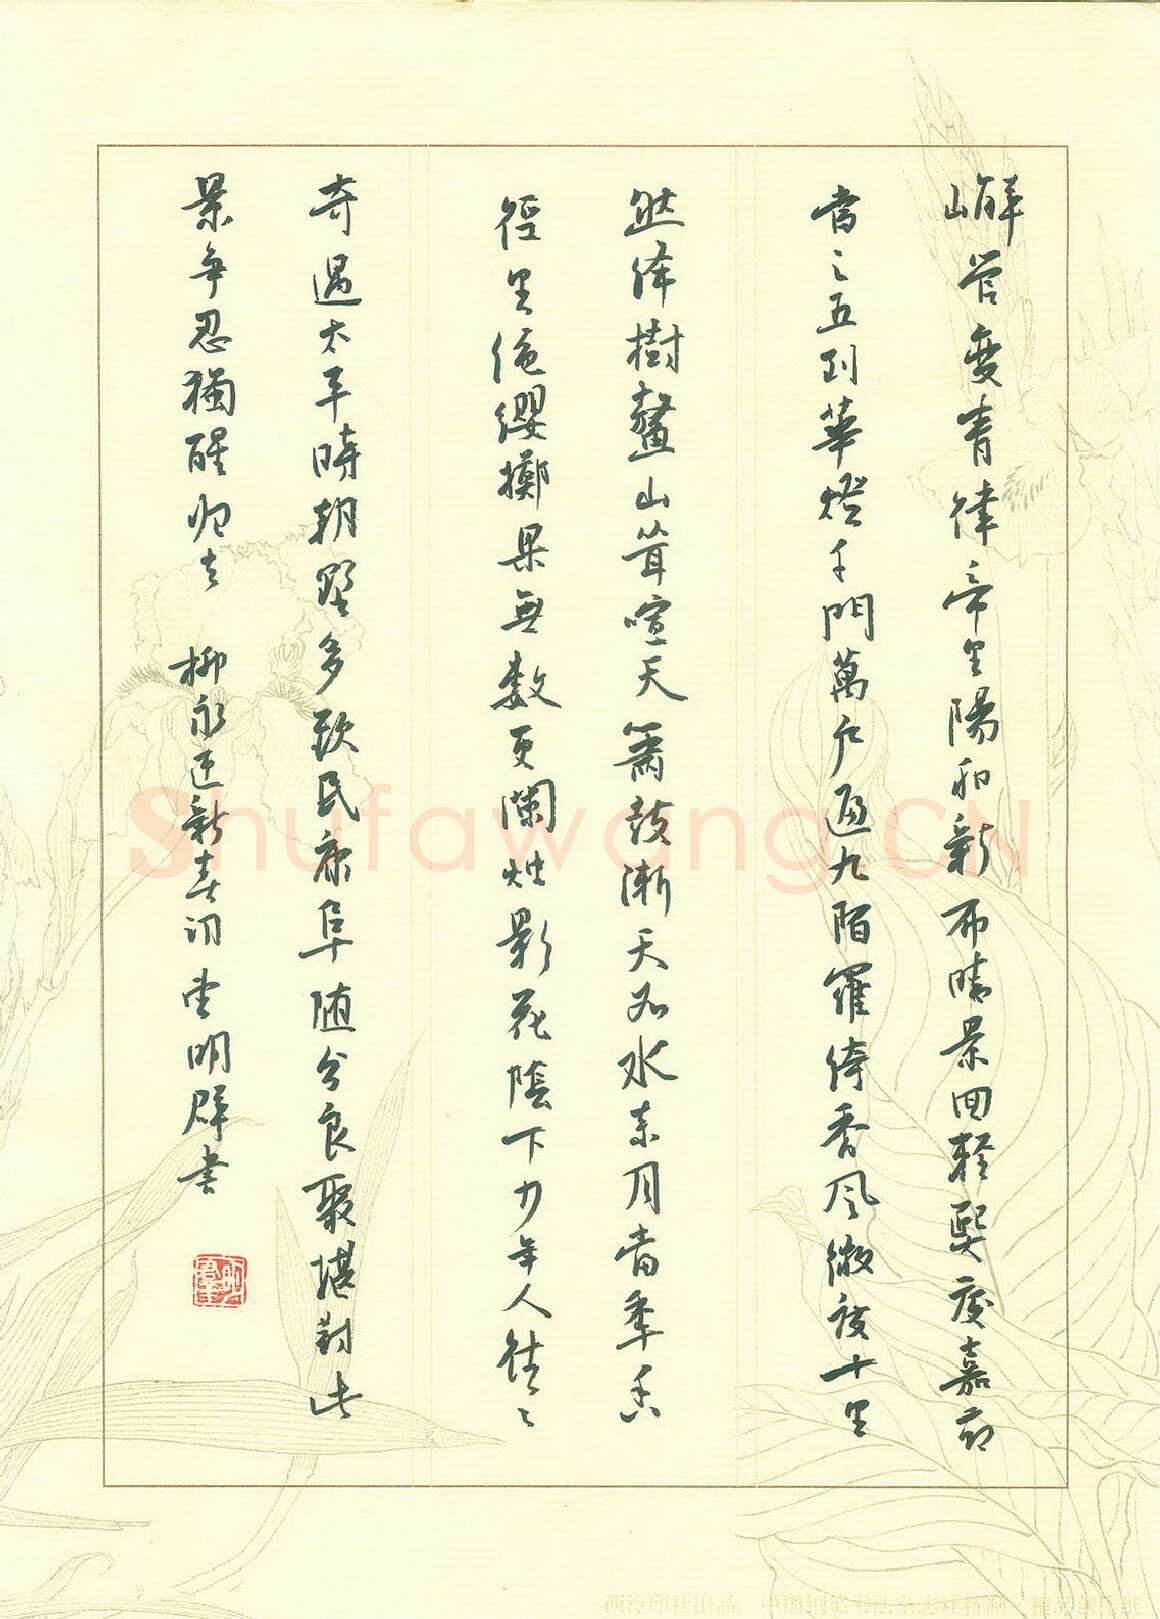 嶰管變青律帝里陽和新布晴景回輕煦慶嘉節
當三五列華燈千門萬户遍九陌羅綺香風微度十里
然絳樹鼇山聳喧天簫鼓漸天如水素月當午香
徑里絶纓擲果無數更闌烛影花陰下少年人往往
奇遇太平時朝野多歡民康阜随分良聚堪對此
景爭忍獨醒归去 柳永迎新春詞 明群書
Shufawang.CN